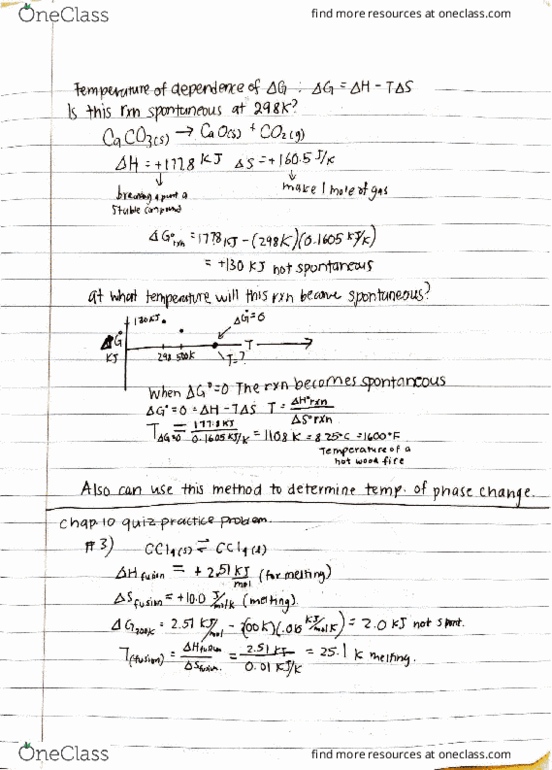 OneClass
find more resources at oneclass.com
Temperature of dependence of ΔG : ΔG = ΔH - TΔS
Is this rxn spontaneous at 298K?
CaCO3(s) → CaO(s) + CO2(g)
ΔH = +177.8 KJ ΔS = +160.5 J/K
↓ ↓
breaking apart a make 1 mole of gas
stable compound
ΔG°rxn = 177.8 KJ - (298K)(0.1605 KJ/K)
= +130 KJ not spontaneous
at what temperature will this rxn become spontaneous?
130KJ ΔG°=0
ΔG° T
KJ 298 500K T=?
When ΔG°=0 The rxn becomes spontaneous
ΔG°=0 = ΔH - TΔS T = ΔH°rxn / ΔS°rxn
TΔG=0 = 177.8 KJ / 0.1605 KJ/K = 1108 K = 825°C = 1600°F
Temperature of a
hot wood fire
Also can use this method to determine temp. of phase change.
Chap 10 quiz practice problem.
#3) CCl4(s) ⇌ CCl4(l)
ΔHfusion = +2.51 KJ/mol (for melting)
ΔSfusion = +10.0 J/molK (melting)
ΔG200K = 2.51 KJ/mol - 200K)(.010 KJ/molK) = 2.0 KJ not spont.
T(fusion) = ΔHfusion / ΔSfusion = 2.51 KJ / 0.01 KJ/K = 25.1 K melting.
OneClass
find more resources at oneclass.com